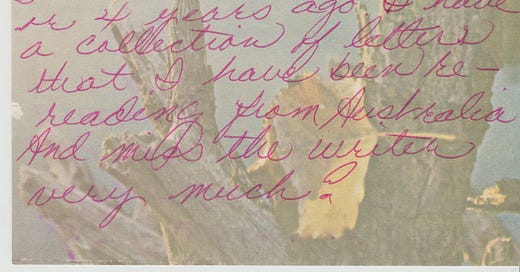 or 4 years ago I have
a collection of letters
that I have been re-
reading from Australia
And miss the writer
very much?